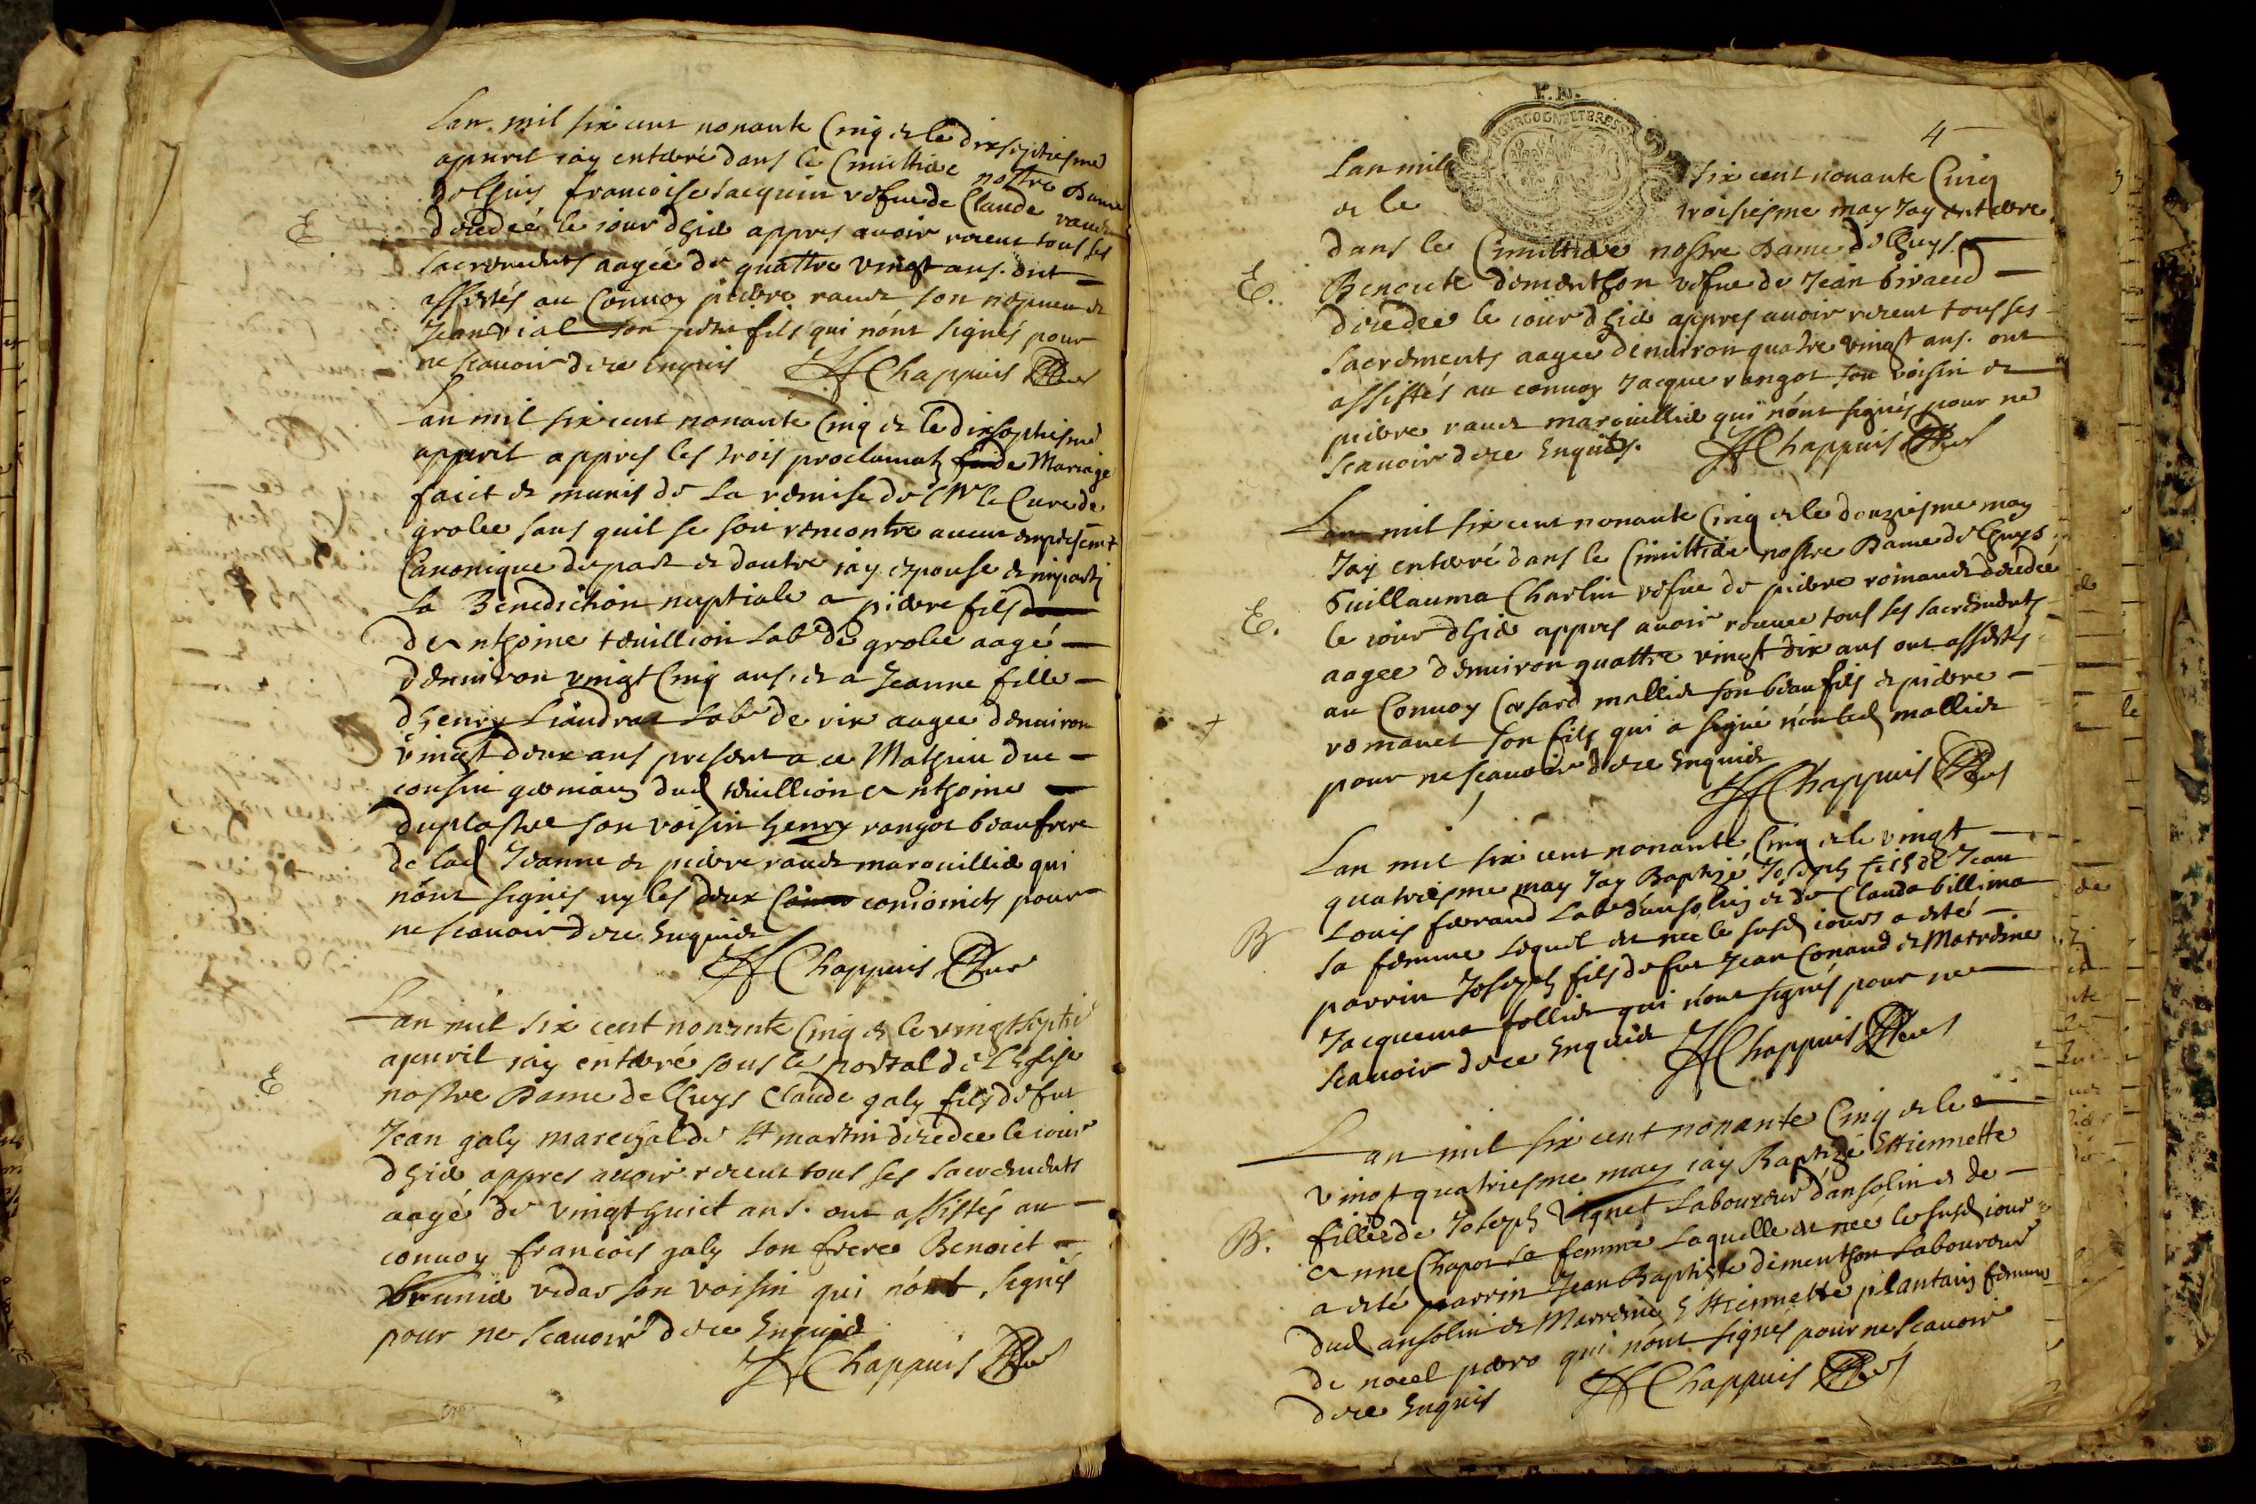 Lan mil six cent nonante Cinq et le dixseptiesme
apuril iay enterré dans le Cimittiere nostre Dame
de lhuys francoise Jacquin vefue de Claude raud
E
decedeé le iour dhier appres auoir receut tous ses
sacrements aageé de quattre vingt ans. ont
assistés au Conuoy pierre raud son nepueu et
Jean vial son petit fils qui nónt signés pour
ne scauoir de ce Enquis Chappuis Cure
Lan mil six cent nonante Cinq et le dixseptiesme
appuril appres les trois proclamats de Mariage
faict et munis de la remise de Mr le Cure de
grolee sans quil se soit rencontre aucun empeschemt
Canonique de part et dautre iay espouse et imparti
la Benediction nuptiale a pierre fils
danthoine teuillion labr de grolee aagé
denuiron vingt Cinq ans. et a Jeanne fille
dhenry Liaudrat labr de rix aagee denuiron
vingt deux ans present a ce Mathieu duc
cousin germain dud teuillion anthoine
duplastre son voisin henry rangot beaufrere
de lad Jeanne et pierre raud marguillier qui
nónt signes ny les deux conioincts pour
ne scauoir de ce Enquis
Chappuis Cure
Lan mil six cent nonante Cinq et le vingtseptie
apuril iay enterré sous le portal de lEglise
E
nostre Dame de lhuys Claude galy fils de fut
Jean galy mareschal de St martin decedee le iour
dhier appres auoir receut tous ses sacrements
aagé de vingt huict ans. ont assistés au
conuoy francois galy son frere Benoict
vedar son voisin qui nónt signés
pour ne scauoir de ce Enquis
Chappuis Cure
BOURGOGNE ET BRESSE
4
Lan mil six cent nonante Cinq
et le troisiesme may Jay enterre
dans le Cimittiere nostre Dame de lhuys
E.
Benoite dementhon vefue de Jean Giraud
decedee le iour dhier appres auoir receut tous ses
sacrements aagee denuiron quatre vingt ans. ont
assistés au conuoy Jacque rangot son voisin et
pierre raud marguillier qui nónt signés pour ne
scauoir de ce Enquis. Chappuis Cure
Lan mil six cent nonante Cinq et le douziesme may
Jay enterré dans le Cimittiere nostre Dame de lhuys
E.
Guillauma Charlin vefue de pierre romanet decedeé
le iour dhier appres auoir receue tous ses sacrements
aagee denuiron quattre vingt dix ans ont assistés
au Conuoy Cesard mallier son beaufils et pierre
+
romanet son fils qui a signé nón led mallier
pour ne scauoir de ce Enquis
Chappuis Cure
Lan mil six cent nonante Cinq et le vingt
quatriesme may Jay Baptizé Joseph fils de Jean
B
Louis ferrand labr dansolin et de Clauda billima
sa femme lequel est nee le susd iour a esté
parrin Joseph fils de fut Jean Conand et Marreine
Jacquema follier qui nónt signés pour ne
scauoir de ce Enquis Chappuis Cure
Lan mil six cent nonante Cinq et le
vingt quatriesme may iay Baptizé Estiennette
B.
fille de Joseph Vignet Laboureur dansolin et de
anne Chapot sa femme laquelle est neé le susd iour
a esté parrin Jean Baptiste dementhon laboureur
dud ansolin et Marreine Estiennette plantain femme
de noel pero qui nónt signés pour ne scauoir
de ce Enquis Chappuis Cure